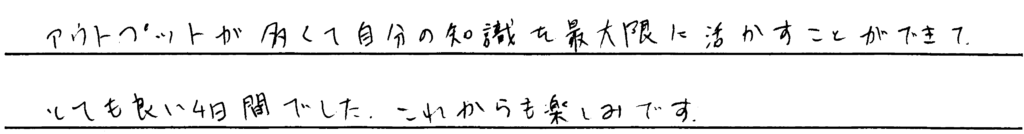 アウトプットが多くて自分の知識を最大限に活かすことができて、
とても良い4日間でした。これからも楽しみです。